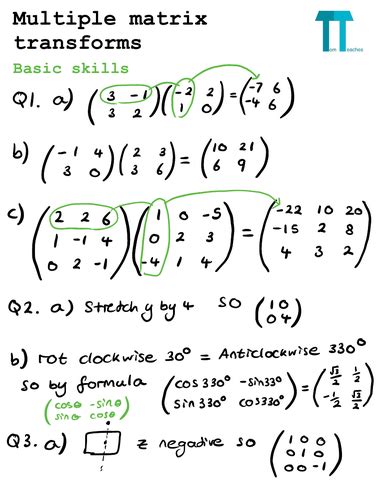 Multiple matrix
transforms
Tom
Teaches
Basic skills
Q1. a) (3 -1 / 3 2)(-2 2 / 1 0) = (-7 6 / -4 6)
b) (-1 4 / 3 0)(2 3 / 3 6) = (10 21 / 6 9)
c) (2 2 6 / 1 -1 4 / 0 2 -1)(1 0 -5 / 0 2 3 / -4 1 4) = (-22 10 20 / -15 2 8 / 4 3 2)
Q2. a) Stretch y by 4 so (1 0 / 0 4)
b) rot clockwise 30° = Anticlockwise 330°
so by formula (cos330° -sin33° / sin330° cos330°) = (√3/2 1/2 / -1/2 √3/2)
(cosθ -sinθ / sinθ cosθ)
Q3. a) z negative so (1 0 0 / 0 1 0 / 0 0 -1)